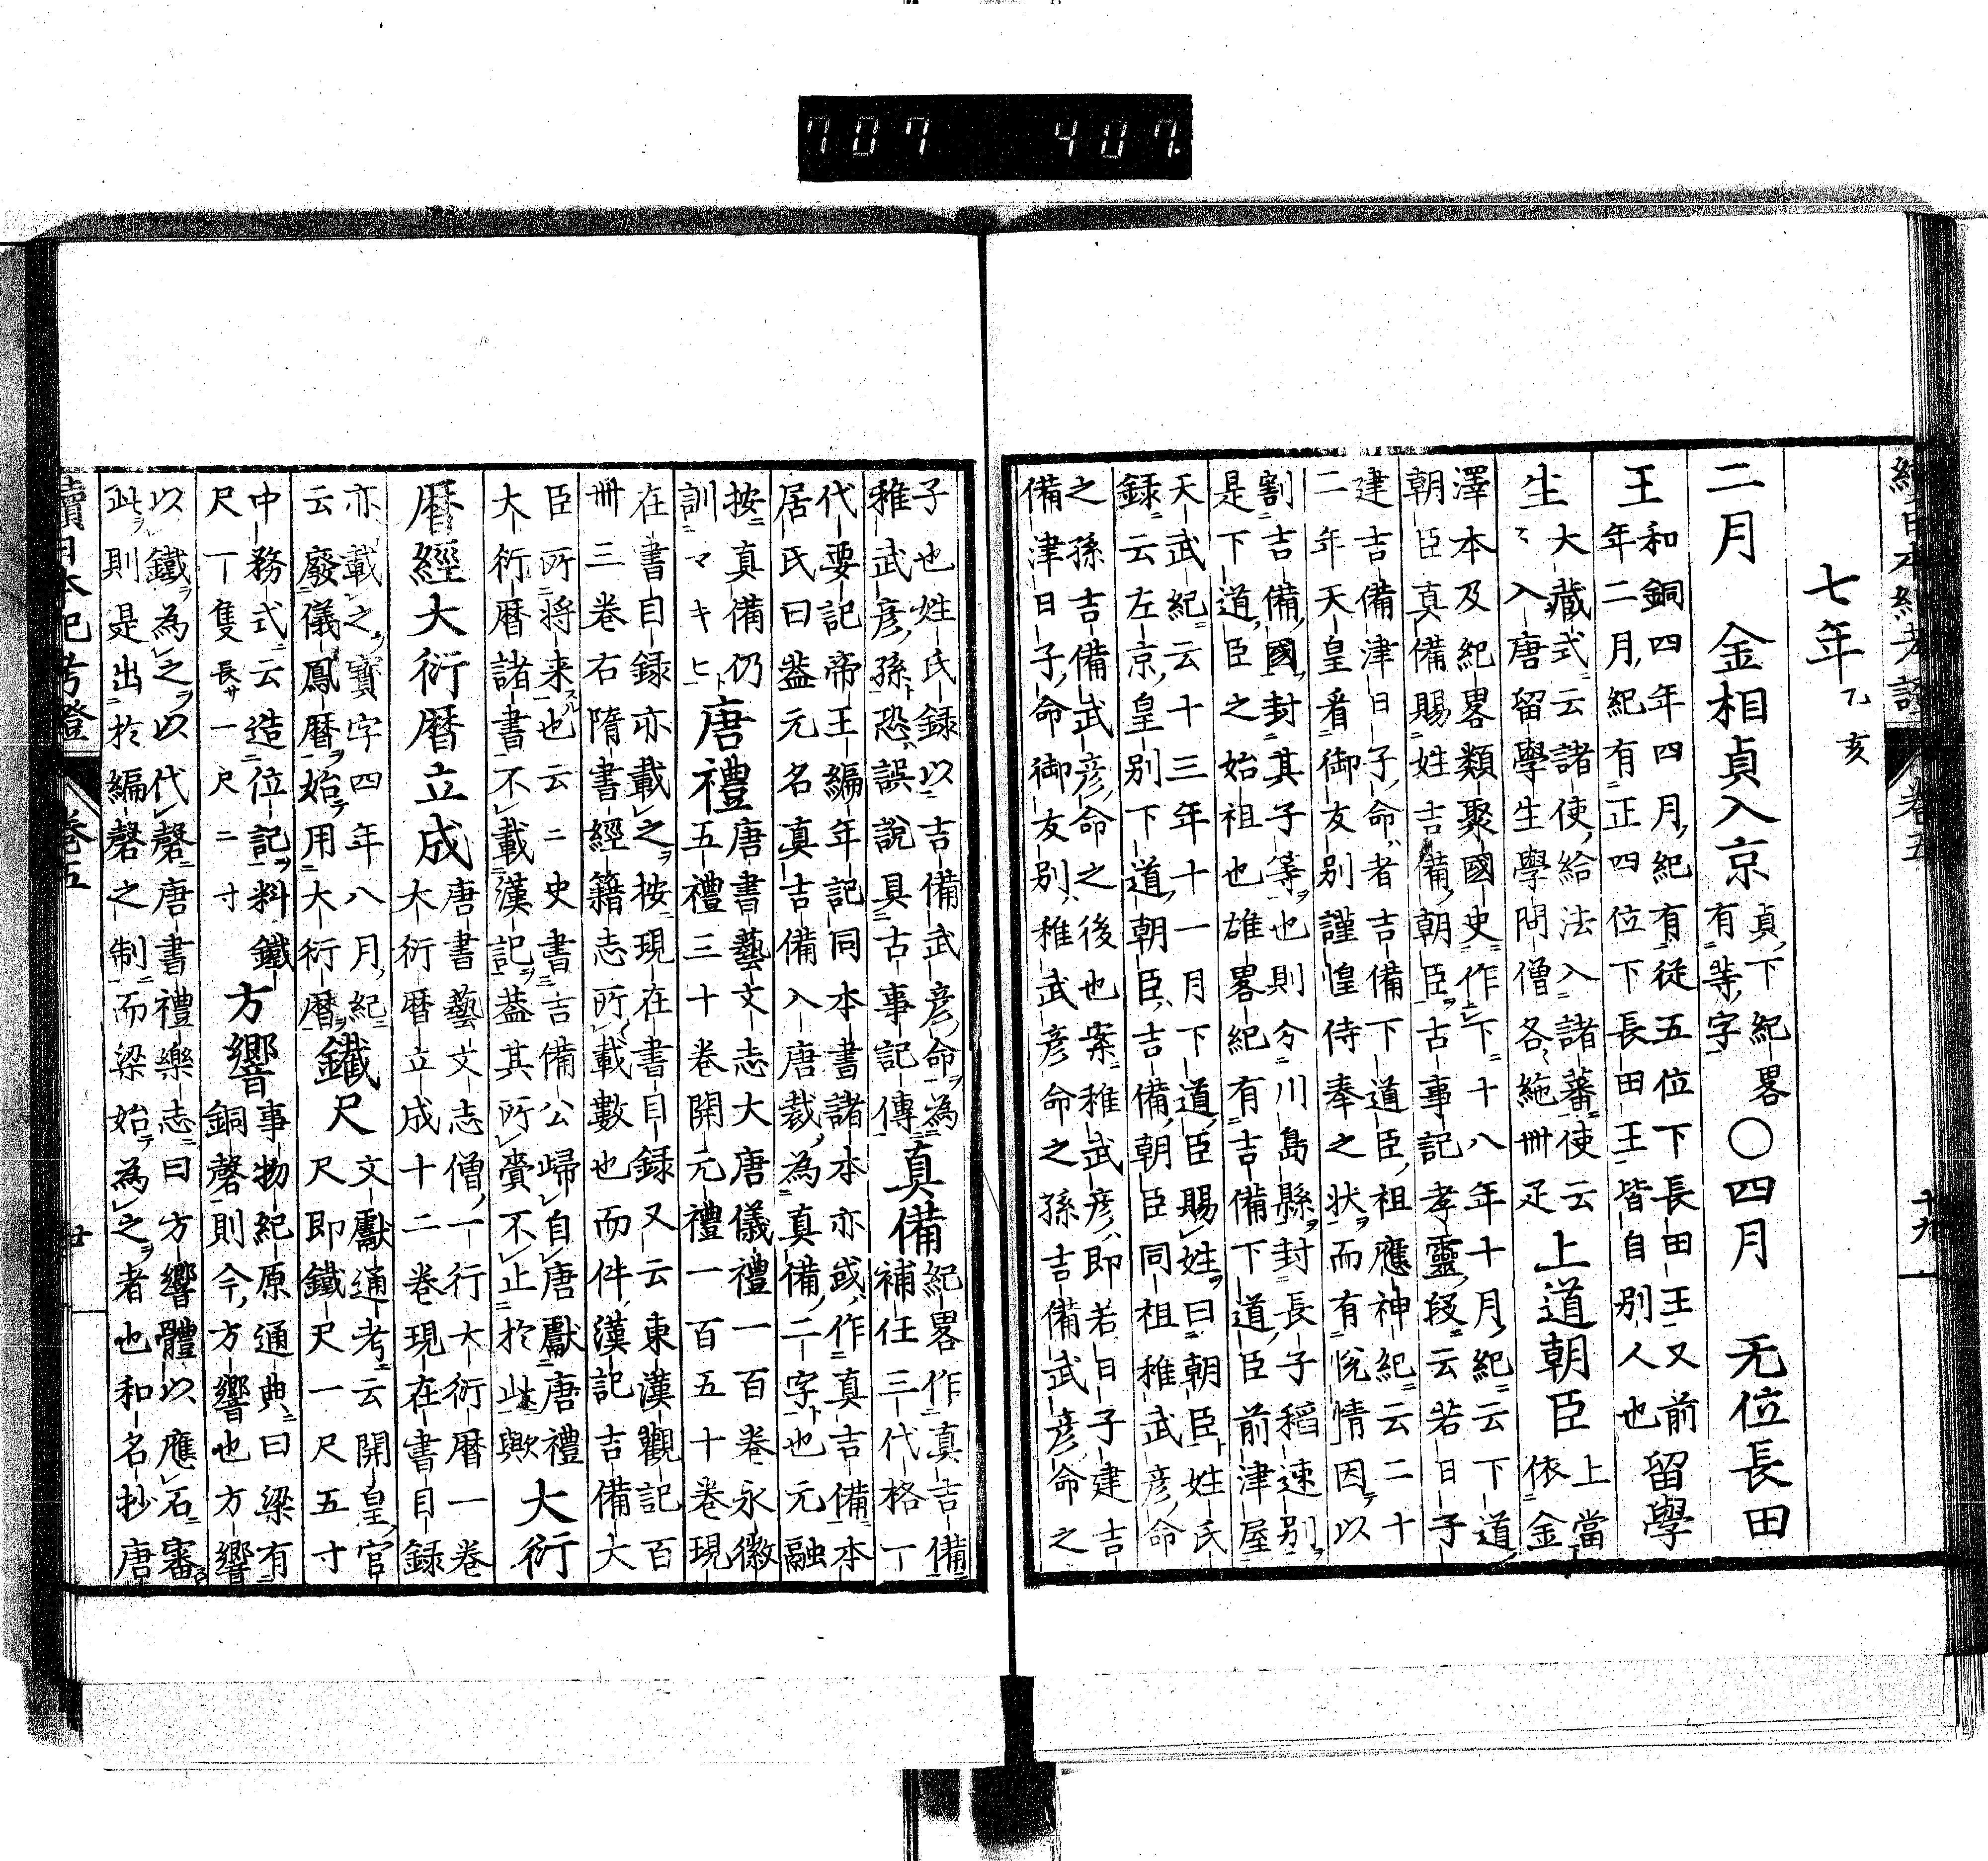 707 407.
續日本紀考證 卷五 十九
七年 乙亥
二月 金相貞入京 貞、下紀畧
有等、字 ○四月 无位長田
王 和銅四年四月、紀有從五位下長田王又前
年二月、紀有正四位下長田王皆自別人也 留學
生 大藏式云諸使、給法入諸蕃使云
云入唐留學生學問僧各、絁卌疋 上道朝臣 上當
依金
澤本及紀畧類聚國史作下十八年十月、紀云下道、
朝臣真備賜姓吉備、朝臣古事記孝靈、段云若日子
建吉備津日子、命、者吉備下道臣、祖應神紀云二十
二年天皇看御友別謹惶侍奉之狀而有悅情因以
割吉備國、封其子等也則分川島縣封長子稻速別、
是下道、臣之始祖也雄畧紀有吉備下道、臣前津屋
天武紀云十三年十一月下道、臣賜姓曰朝臣姓氏
録云左京、皇別下道、朝臣、吉備、朝臣同祖稚武彦、命
之孫吉備武彦、命之後也案稚武彦、即若日子建吉
備津日子、命御友別、稚武彦命之孫吉備武彦、命之
子也姓氏録以吉備武彦、命為
稚武彦、孫恐、誤說具古事記傳 真備 紀畧作真吉備
補任三代格丁
代要記帝王編年記同本書諸本亦或、作真吉備本
居氏曰葢元名真吉備入唐裁、為真備、二字也元融
按真備仍
訓マキヒ 唐禮 唐書藝文志大唐儀禮一百卷永徽
五禮三十卷開元禮一百五十卷現
在書目録亦載之按現在書目録又云東漢觀記百
卌三卷右隋書經籍志所載數也而件、漢記吉備大
臣所将来也云二史書吉備公歸自唐獻唐禮
大衍暦諸書不載漢記葢其所賷不止於此歟 大衍
暦經大衍暦立成 唐書藝文志僧、一行大衍暦一卷
大衍暦立成十二卷現在書目録
亦載之寶字四年八月、紀
云廢儀鳳暦始用大衍暦 鐵尺 文獻通考云開皇、官
尺即鐵尺一尺五寸
中務式云造位記料鐵
尺一隻 長サ一尺二寸 方響 事物紀原通典曰梁有
銅磬則今、方響也方響
以鐵為之以代磬唐書禮樂志曰方響體以應石審
此則是出於編磬之制而梁始為之者也和名抄唐
續日本紀考證 卷五 廿